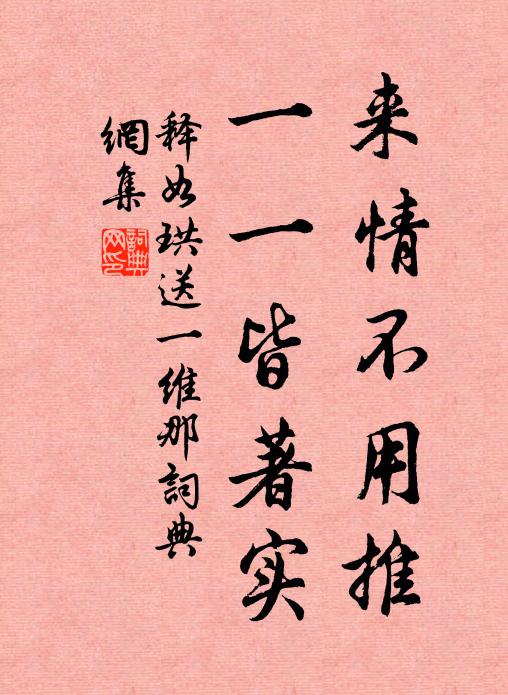 来情不用推
一一皆著实
释如珙送一维那詞典
網集
詞典網印